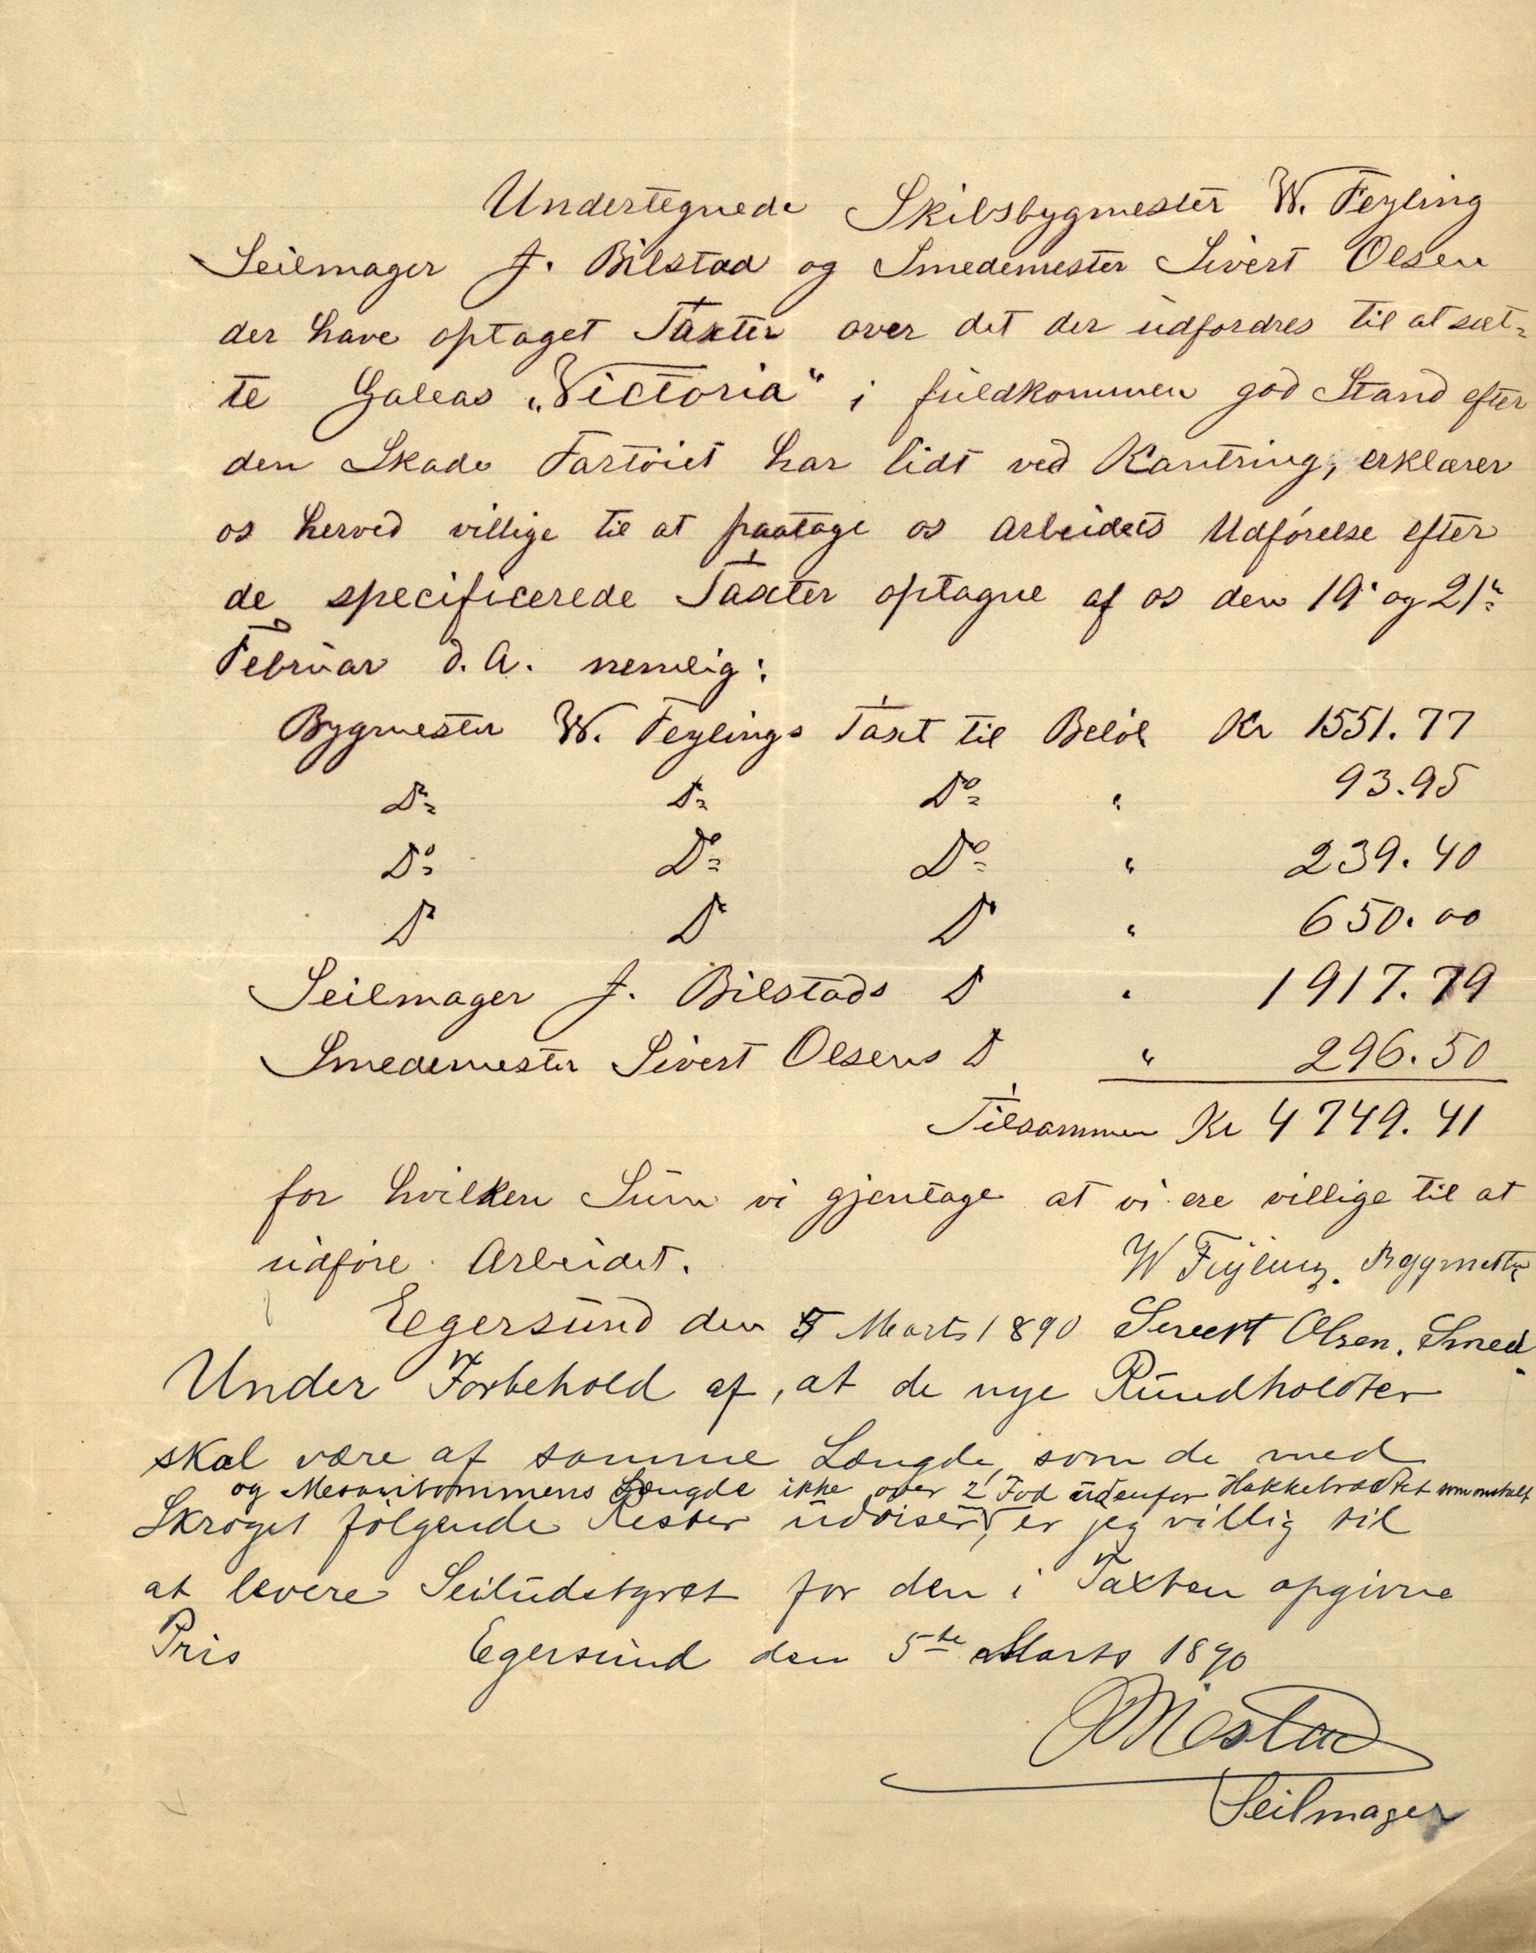 Undertegnede Skibsbygmester W. Feyling
Seilmager J. Bilstad og Smedemester Sivert Olsen
der have optaget Taxter over det der udfordres til at sæt-
te Galeas „Victoria“ i fuldkommen god Stand efter
den Skade Fartöiet har lidt ved Kantring, erklærer
os herved villige til at paatage os Arbeidets Udförelse efter
de specificerede Taxter optagne af os den 19. og 21.
Februar d. A. nemlig:
Bygmester W. Feylings Taxt til Belöb Kr 1551.77
Do Do Do " 93.95
Do Do Do " 239.40
Do Do Do " 650.00
Seilmager J. Bilstads Do " 1917.79
Smedemester Sivert Olsens Do " 296.50
Tilsammen Kr 4749.41
for hvilken Sum vi gjentage at vi ere villige til at
udföre Arbeidet.
W Feyling. Bygmester
Egersund den 5 Marts 1890 Sivert Olsen. Smed
Under Forbehold af, at de nye Rundholdter
skal være af samme Længde, som de med
og Mesanbommens Længde ikke over 2 Fod udenfor Hakkebrædtet
Skroget fölgende Rester udviser, er jeg villig til
at levere Seiludstyret for den i Taxten opgivne
Pris Egersund den 5te Marts 1890
J Bilstad
Seilmager